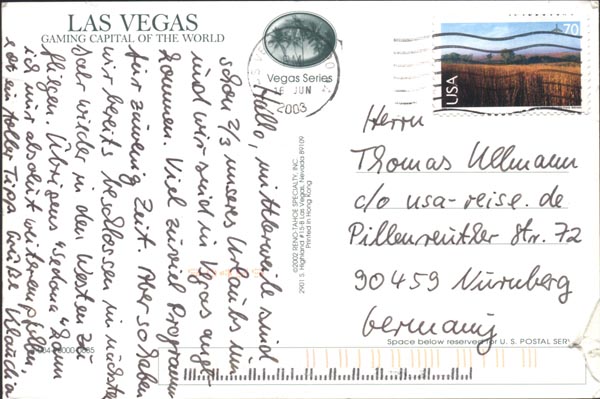 LAS VEGAS
GAMING CAPITAL OF THE WORLD
Vegas Series
16 JUN
2003
70
USA
Hallo, mittlerweile sind
schon 2/3 unseres Urlaubs um
und wir sind in Vegas ange-
kommen. Viel zuviel Programm
für zuwenig Zeit. Aber so haben
wir bereits beschlossen im nächsten
Jahr wieder in den Westen zu
fliegen. Übrigens "Sedona" kann
ich nur absolut weiterempfehlen,
ein toller Tipp. Grüße Claudia
©2002 RENO-TAHOE SPECIALTY, INC.
2901 S. Highland #15-B Las Vegas, Nevada 89109
Printed in Hong Kong
Herrn
Thomas Ullmann
c/o usa-reise.de
Pillenreuther Str. 72
90459 Nürnberg
Germany
Space below reserved for U.S. POSTAL SER